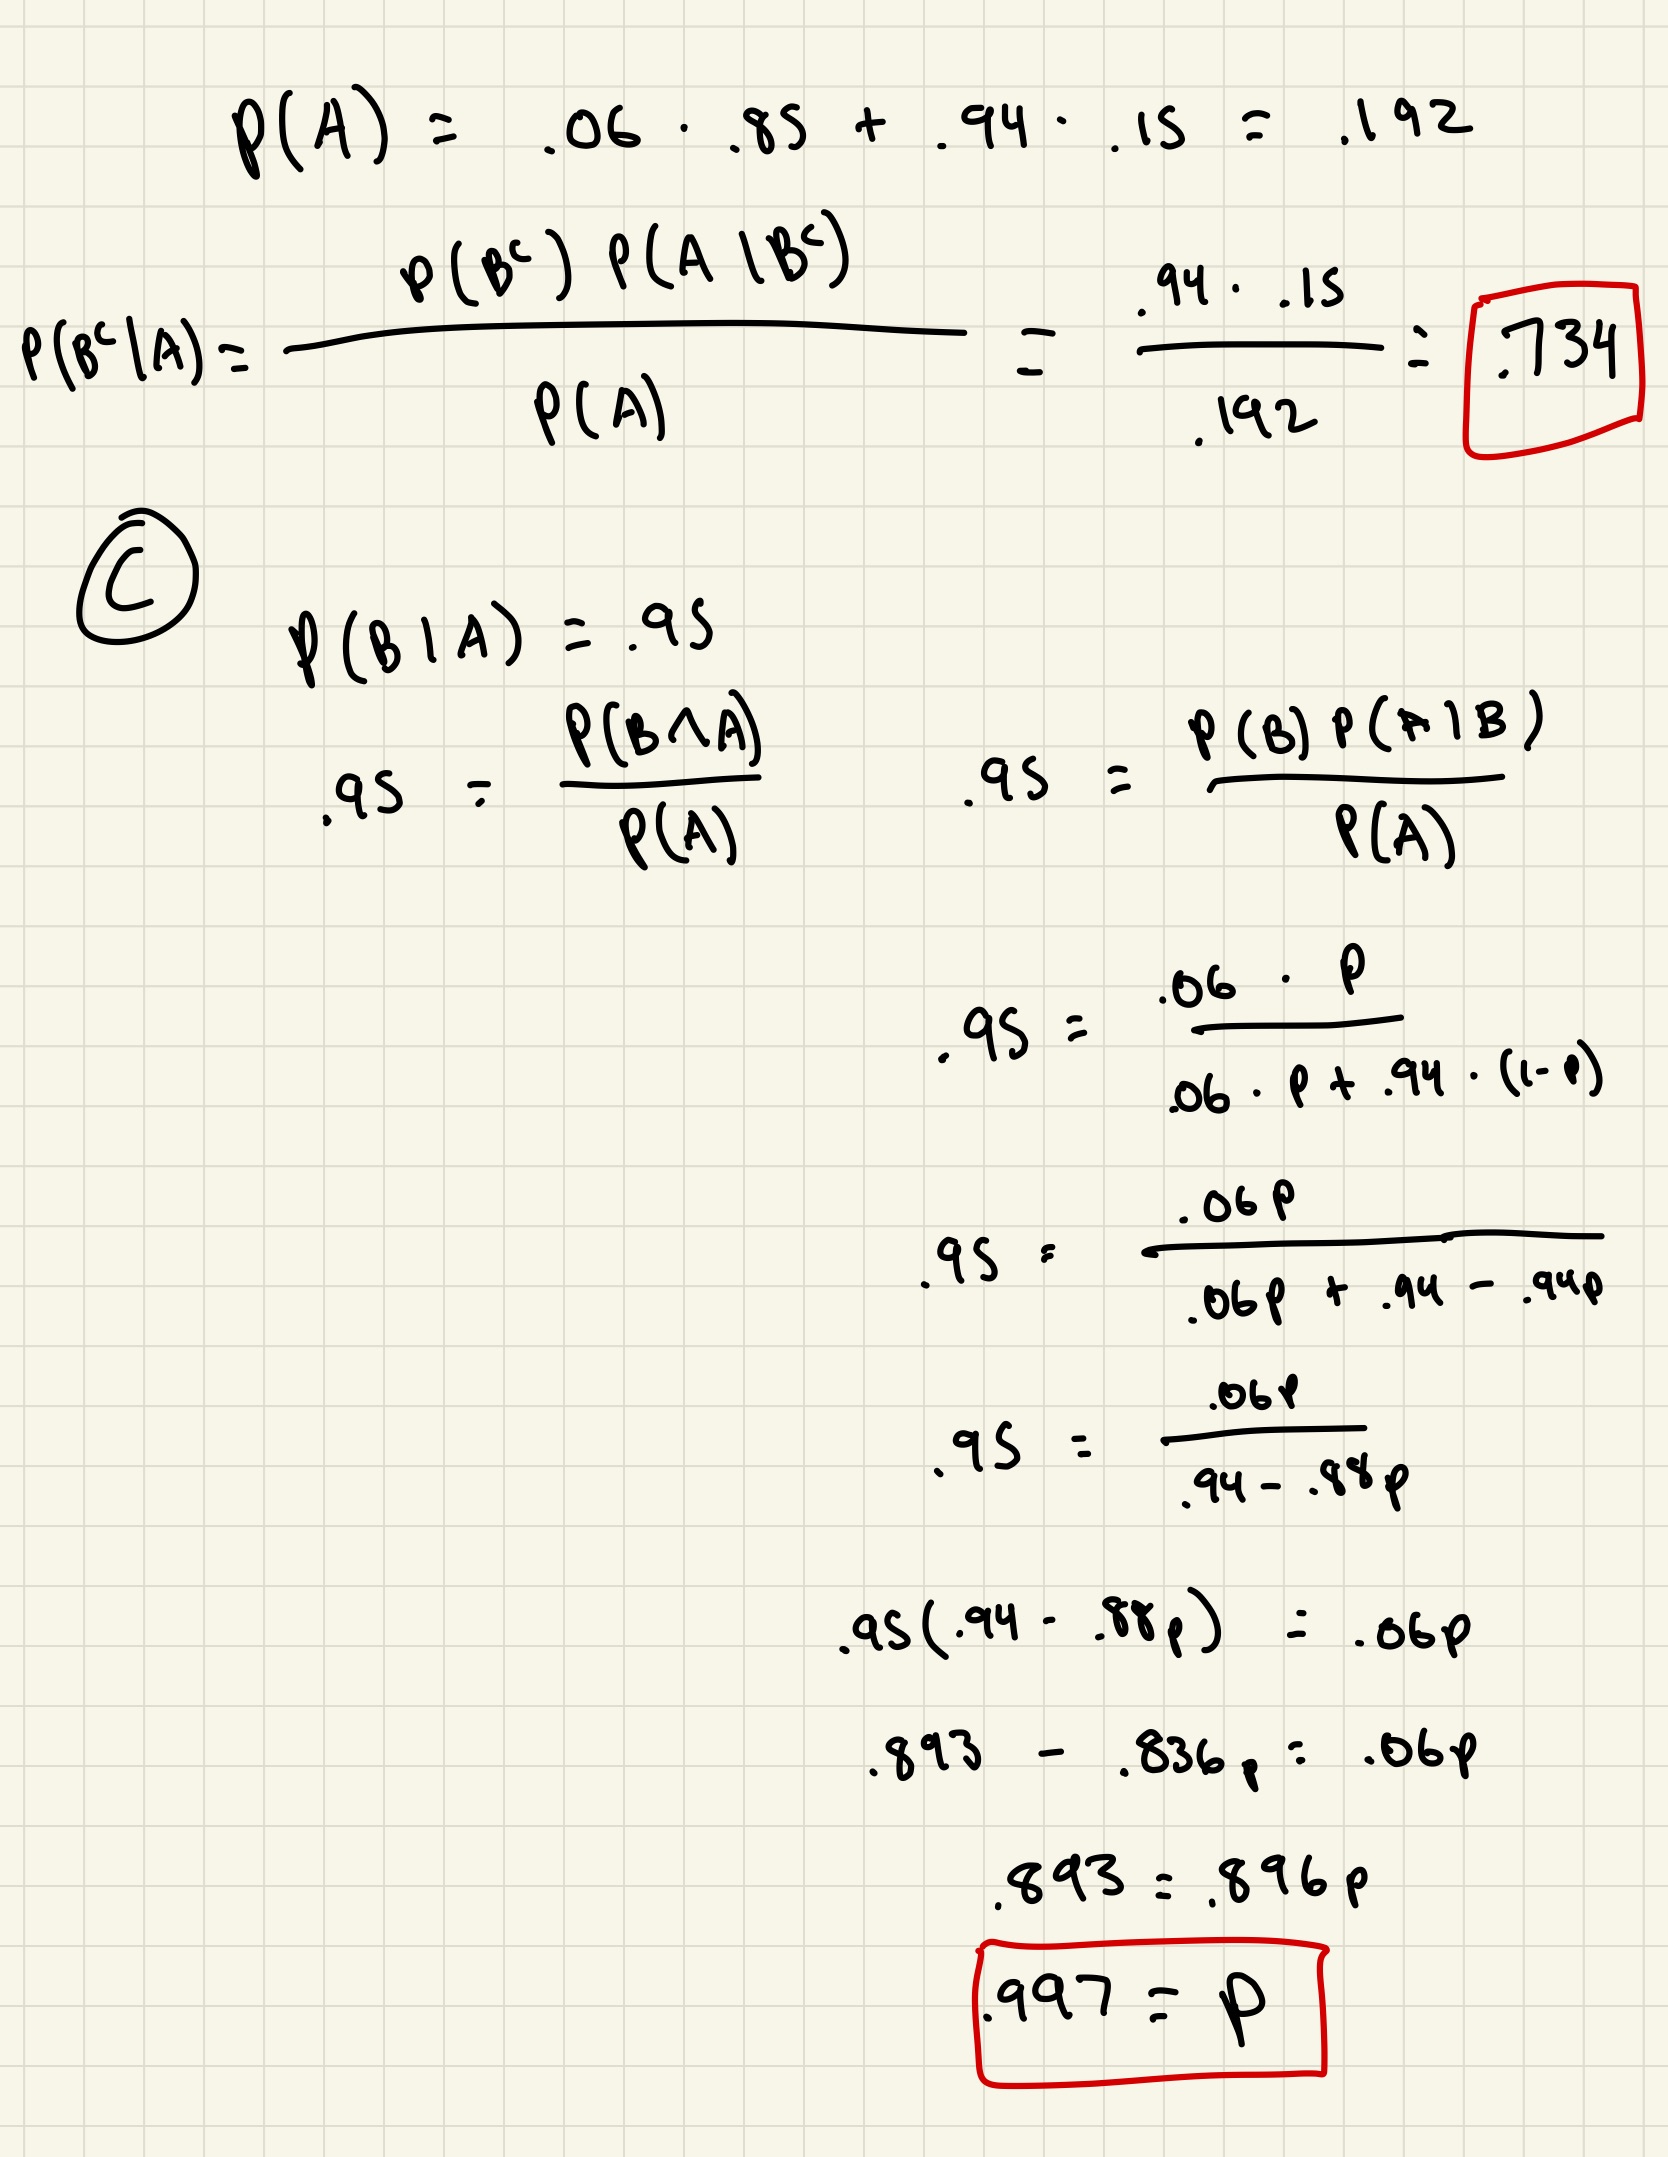 P(A) = .06 · .85 + .94 · .15 = .192
P(Bᶜ|A) = P(Bᶜ) P(A|Bᶜ) / P(A) = .94 · .15 / .192 = .734
C
P(B|A) = .95
.95 = P(B∩A) / P(A)
.95 = P(B) P(A|B) / P(A)
.95 = .06 · P / .06 · P + .94 · (1-P)
.95 = .06P / .06P + .94 - .94P
.95 = .06P / .94 - .88P
.95(.94 - .88P) = .06P
.893 - .836P = .06P
.893 = .896P
.997 = P